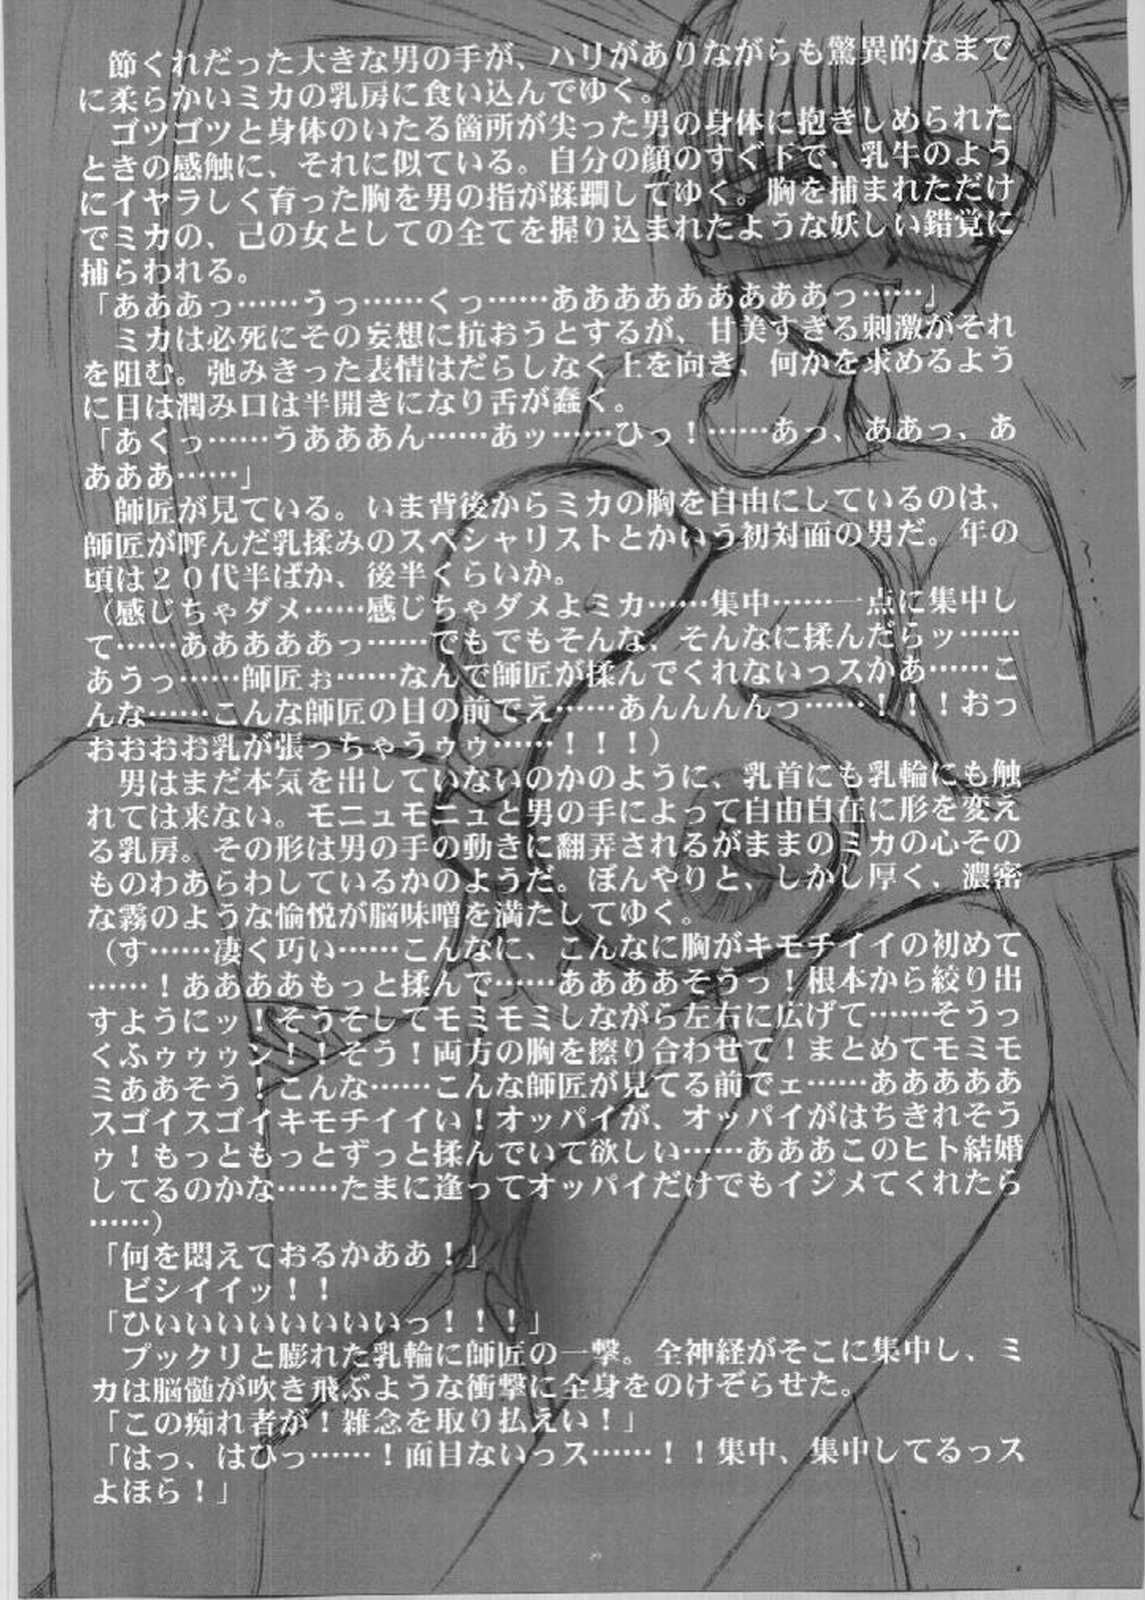 節くれだった大きな男の手が、ハリがありながらも驚異的なまで
に柔らかいミカの乳房に食い込んでゆく。
ゴツゴツと身体のいたる箇所が尖った男の身体に抱きしめられた
ときの感触に、それに似ている。自分の顔のすぐ下で、乳牛のよう
にイヤラしく育った胸を男の指が蹂躙してゆく。胸を捕まれただけ
でミカの、己の女としての全てを握り込まれたような妖しい錯覚に
捕らわれる。
「あああっ……うっ……くっ……ああああああああああっ……」
ミカは必死にその妄想に抗おうとするが、甘美すぎる刺激がそれ
を阻む。弛みきった表情はだらしなく上を向き、何かを求めるよう
に目は潤み口は半開きになり舌が蠢く。
「あくっ……うあああん……あッ……ひっ！……あっ、ああっ、あ
あああ……」
師匠が見ている。いま背後からミカの胸を自由にしているのは、
師匠が呼んだ乳揉みのスペシャリストとかいう初対面の男だ。年の
頃は２０代半ばか、後半くらいか。
（感じちゃダメ……感じちゃダメよミカ……集中……一点に集中し
て……ああああああっ……でもでもそんな、そんなに揉んだらッ……
あうっ……師匠ぉ……なんで師匠が揉んでくれないっスかあ……こ
んな……こんな師匠の目の前でえ……あんんんんっ……！！！おっ
おおおおお乳が張っちゃうゥゥ……！！！）
男はまだ本気を出していないのかのように、乳首にも乳輪にも触
れては来ない。モニュモニュと男の手によって自由自在に形を変え
る乳房。その形は男の手の動きに翻弄されるがままのミカの心その
ものわあらわしているかのようだ。ぼんやりと、しかし厚く、濃密
な霧のような愉悦が脳味噌を満たしてゆく。
（す……凄く巧い……こんなに、こんなに胸がキモチイイの初めて
……！ああああもっと揉んで……ああああそうっ！根本から絞り出
すようにッ！そうそしてモミモミしながら左右に広げて……そうっ
くふゥゥゥン！！そう！両方の胸を擦り合わせて！まとめてモミモ
ミああそう！こんな……こんな師匠が見てる前でェ……ああああああ
スゴイスゴイキモチイイい！オッパイが、オッパイがはちきれそう
ゥ！もっともっとずっと揉んでいて欲しい……あああこのヒト結婚
してるのかな……たまに逢ってオッパイだけでもイジメてくれたら
……）
「何を悶えておるかああ！」
ビシイイッ！！
「ひいいいいいいいいいっ！！！」
プックリと膨れた乳輪に師匠の一撃。全神経がそこに集中し、ミ
カは脳髄が吹き飛ぶような衝撃に全身をのけぞらせた。
「この痴れ者が！雑念を取り払えい！」
「はっ、はひっ……！面目ないっス……！！集中、集中してるっス
よほら！」